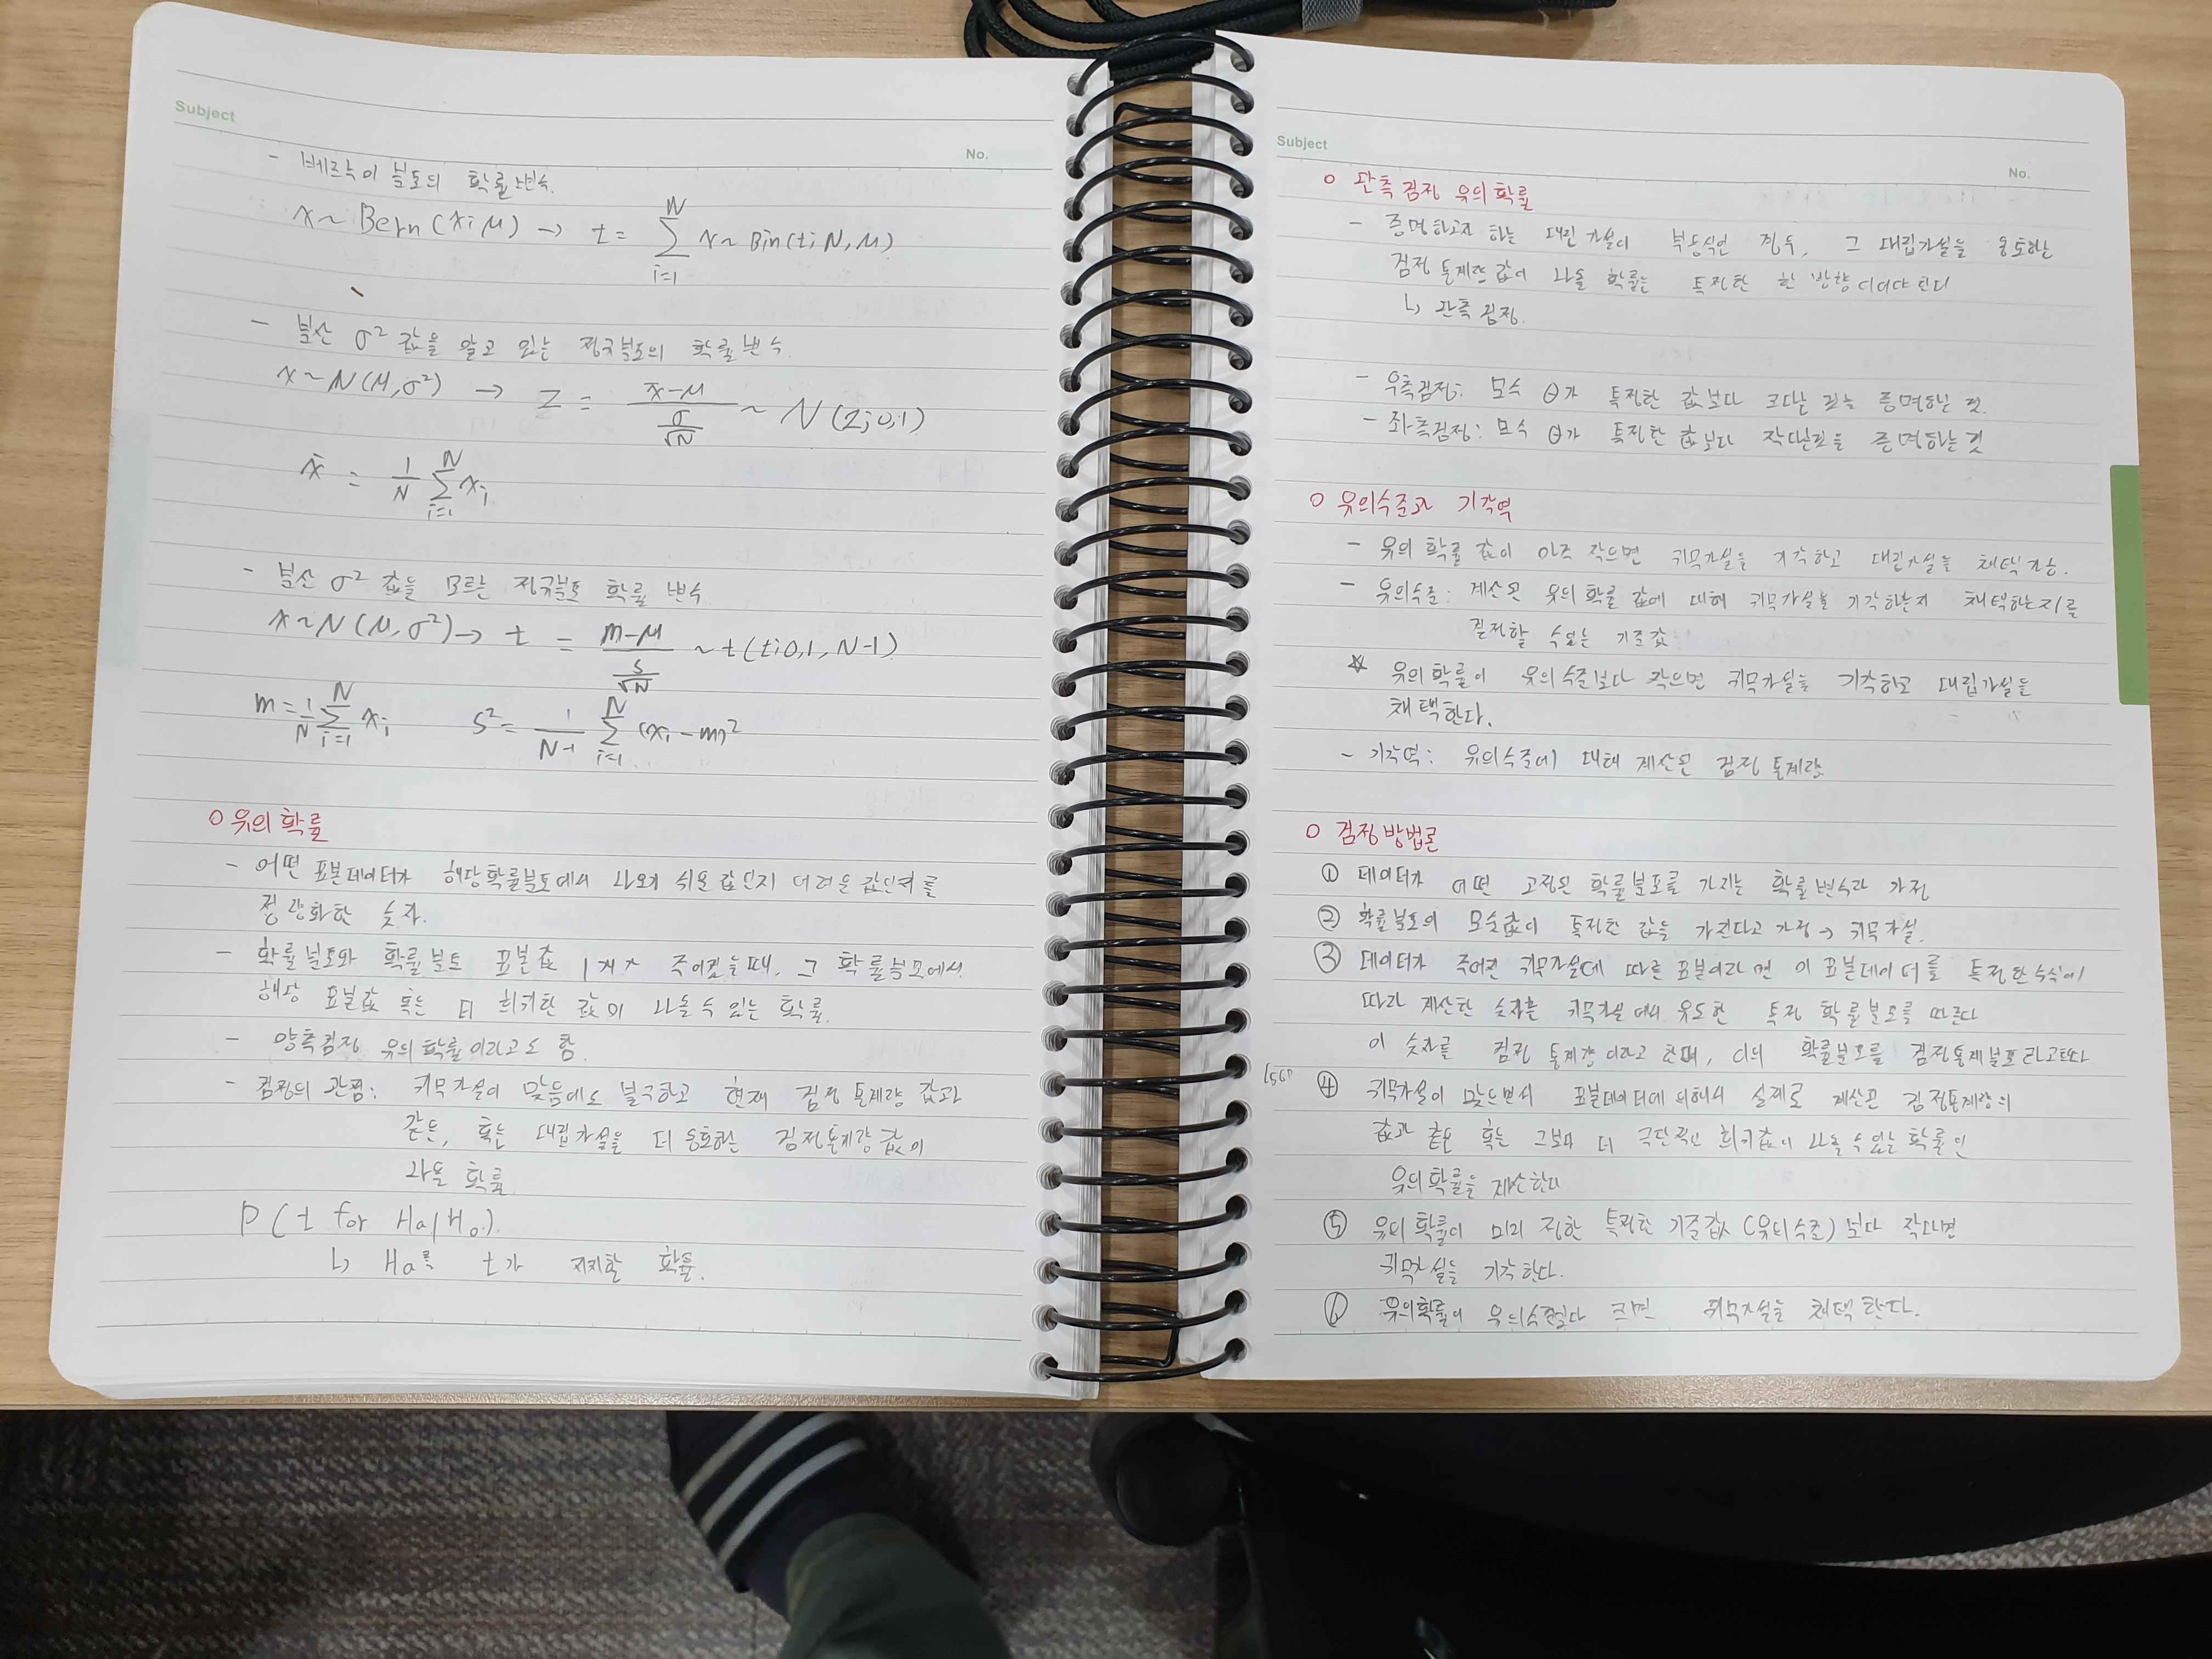 Subject
No.
- 베르누이 분포의 확률변수.
x ~ Bern(x; μ) → t = N ∑ i=1 x ~ Bin(t; N, μ)
- 분산 σ² 값을 알고 있는 정규분포의 확률 변수.
x ~ N(μ, σ²) → z = (x̄-μ)/(σ/√N) ~ N(z; 0, 1)
x̄ = 1/N N ∑ i=1 xi
- 분산 σ² 값을 모르는 정규분포 확률 변수
x ~ N(μ, σ²) → t = (m-μ)/(s/√N) ~ t(t; 0, 1, N-1)
m = 1/N N ∑ i=1 xi s² = 1/(N-1) N ∑ i=1 (xi - m)²
○ 유의 확률
- 어떤 표본데이터가 해당확률분포에서 나오기 쉬운 값인지 어려운 값인지를
정량화한 숫자.
- 확률분포와 확률분포 표본값 1개가 주어졌을때, 그 확률분포에서
해당 표본값 혹은 더 희귀한 값이 나올 수 있는 확률.
- 양측검정 유의확률이라고도 함.
- 검정의 관점: 귀무가설이 맞음에도 불구하고 현재 검정 통계량 값과
같은, 혹은 대립가설을 더 옹호하는 검정통계량 값이
나올 확률
P(t for Ha | H0).
↳ Ha를 t가 지지할 확률.
Subject
No.
○ 단측 검정 유의 확률
- 증명하고자 하는 대립 가설이 부등식인 경우, 그 대립가설을 옹호하는
검정 통계량 값이 나올 확률는 특정한 한 방향이어야 된다
↳ 단측 검정.
- 우측검정: 모수 θ가 특정한 값보다 크다는 것을 증명하는 것.
- 좌측검정: 모수 θ가 특정한 값보다 작다는것을 증명하는 것
○ 유의수준과 기각역
- 유의 확률 값이 아주 작으면 귀무가설을 기각하고 대립가설을 채택가능.
- 유의수준: 계산된 유의 확률 값에 대해 귀무가설을 기각하는지 채택하는지를
결정할 수 있는 기준값
☆ 유의확률이 유의수준보다 작으면 귀무가설을 기각하고 대립가설을
채택한다.
- 기각역: 유의수준에 대해 계산된 검정 통계량
○ 검정방법론
① 데이터가 어떤 고정된 확률분포를 가지는 확률변수라 가정
② 확률분포의 모수값이 특정한 값을 가진다고 가정 → 귀무가설.
③ 데이터가 주어진 귀무가설에 따른 표본이라면 이 표본데이터를 특정한 수식에
따라 계산한 숫자는 귀무가설에서 유도한 특정 확률분포를 따른다
이 숫자를 검정 통계량 이라고 한대, 이의 확률분포를 검정통계분포 라고한다
④ 귀무가설이 맞으면서 표본데이터에 의해서 실제로 계산된 검정통계량의
값과 같은 혹은 그보다 더 극단적인 희귀값이 나올 수 있는 확률인
유의확률을 계산한다
⑤ 유의 확률이 미리 정한 특정한 기준값(유의수준) 보다 작다면
귀무가설을 기각한다.
⑥ 유의확률이 유의수준보다 크면 귀무가설을 채택한다.